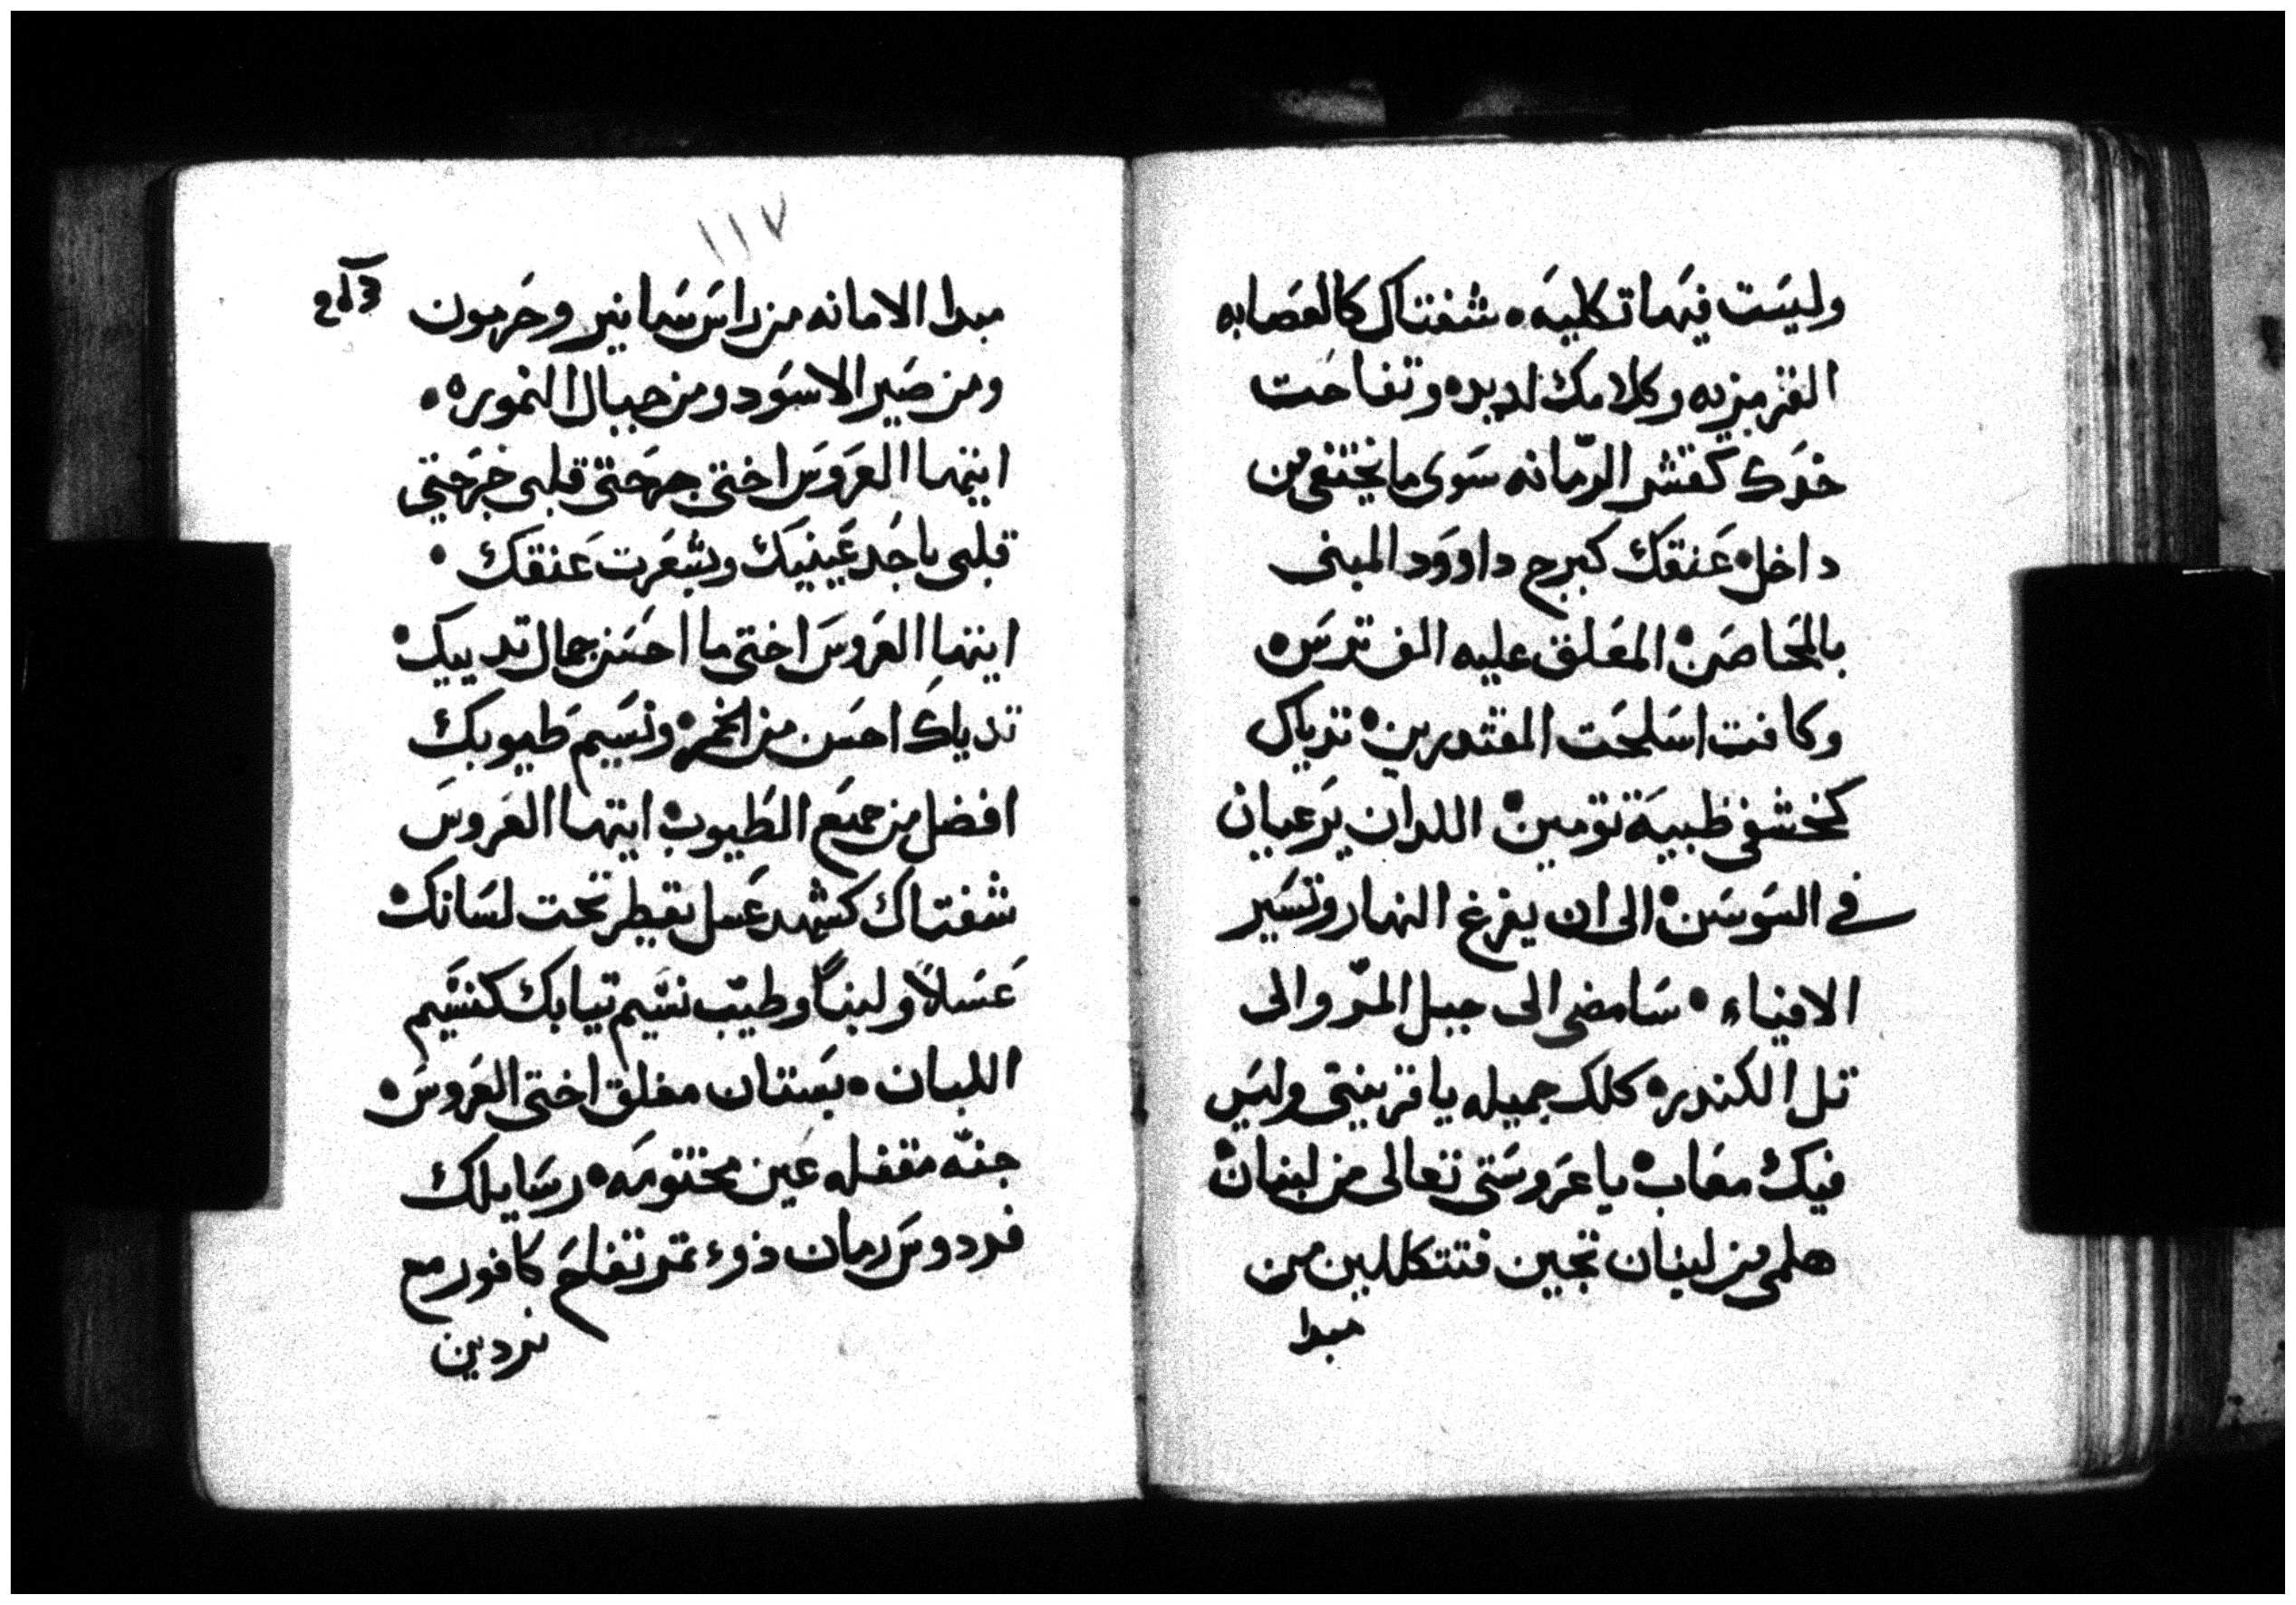 وليست فيها تكليه • شفتاك كالعصابه
القزمزيه وكلامك لديده وتفاحت
خدك كقشر الرمانه سوى ما يختفى من
داخل • عنقك كبرج داوود المبنى
بالمحاصن • المعلق عليه الف ترس •
وكافت اسلحت المقتدرين • تدياك
كخشفى ظبية تومين • اللدان يرعيان
في السوسن • الى ان يفرغ النهار وتسير
الافياء • سامضى الى جبل المر والى
تل الكندر • كلك جميله يا قرينتى وليس
فيك معاب • يا عروستى تعالى من لبنان •
هلمى من لبنان تجين فتتكللين من
مبدا
١١٧
مبدا الامانه من راس سمانير وحرمون
ومن صير الاسود ومن جبال النموره •
ايتها العروس اختى جرحتى قلبى جرحتى
قلبى باحد عينيك وبشعرت عنقك •
ايتها العروس اختى ما احسن جمال تدييك •
تدياك احسن من الخمر • ونسيم طيوبك
افضل من جميع الطيوب • ايتها العروس
شفتاك كشهد عسل يقطر تحت لسانك •
عسلاً ولبناً وطيب نسيم تيابك كنسيم
اللبان • بستان مغلق اختى العروس •
جنه مقفله عين مختومه • رسايلك
فردوس رمان ذوء تمر تفاح كافور مع
نردين